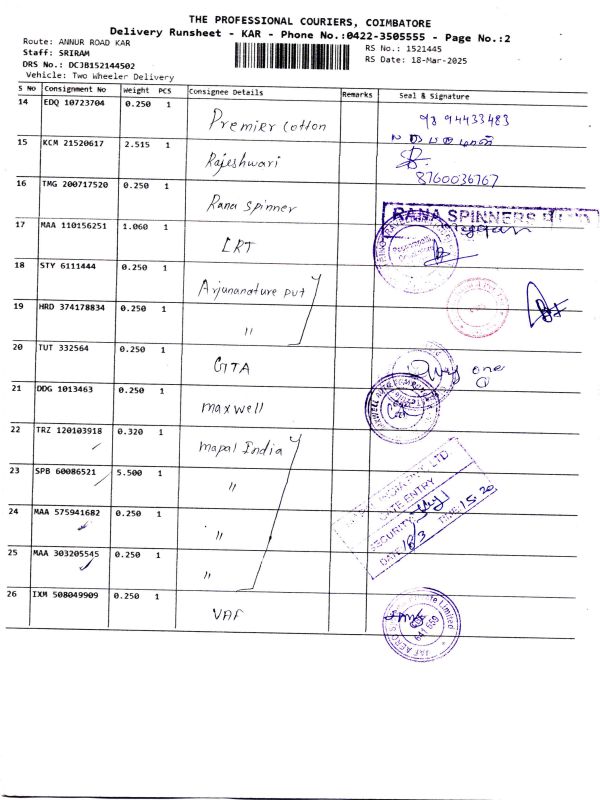 THE PROFESSIONAL COURIERS, COIMBATORE
Delivery Runsheet - KAR - Phone No.:0422-3505555 - Page No.:2
Route: ANNUR ROAD KAR
RS No.: 1521445
Staff: SRIRAM
RS Date: 18-Mar-2025
DRS No.: DCJB152144502
Vehicle: Two Wheeler Delivery
S No Consignment No Weight PCS Consignee Details Remarks Seal & Signature
14 EDQ 10723704 0.250 1 Premier Cotton 94433483
15 KCM 21520617 2.515 1 Rajeshwari
8760036767
16 TMG 200717520 0.250 1 Rana Spinner
RANA SPINNERS
17 MAA 110156251 1.060 1 LRT
18 STY 6111444 0.250 1 Arjunanature put
19 HRD 374178834 0.250 1 "
20 TUT 332564 0.250 1 GTA
one
21 DDG 1013463 0.250 1 maxwell
22 TRZ 120103918 0.320 1 mapal India
23 SPB 60086521 5.500 1 "
LTD.
GATE ENTRY
SECURITY
DATE 18/3 TIME 15.20
24 MAA 575941682 0.250 1 "
25 MAA 303205545 0.250 1 "
26 IXM 508049909 0.250 1 VAF
Private Limited
641 659